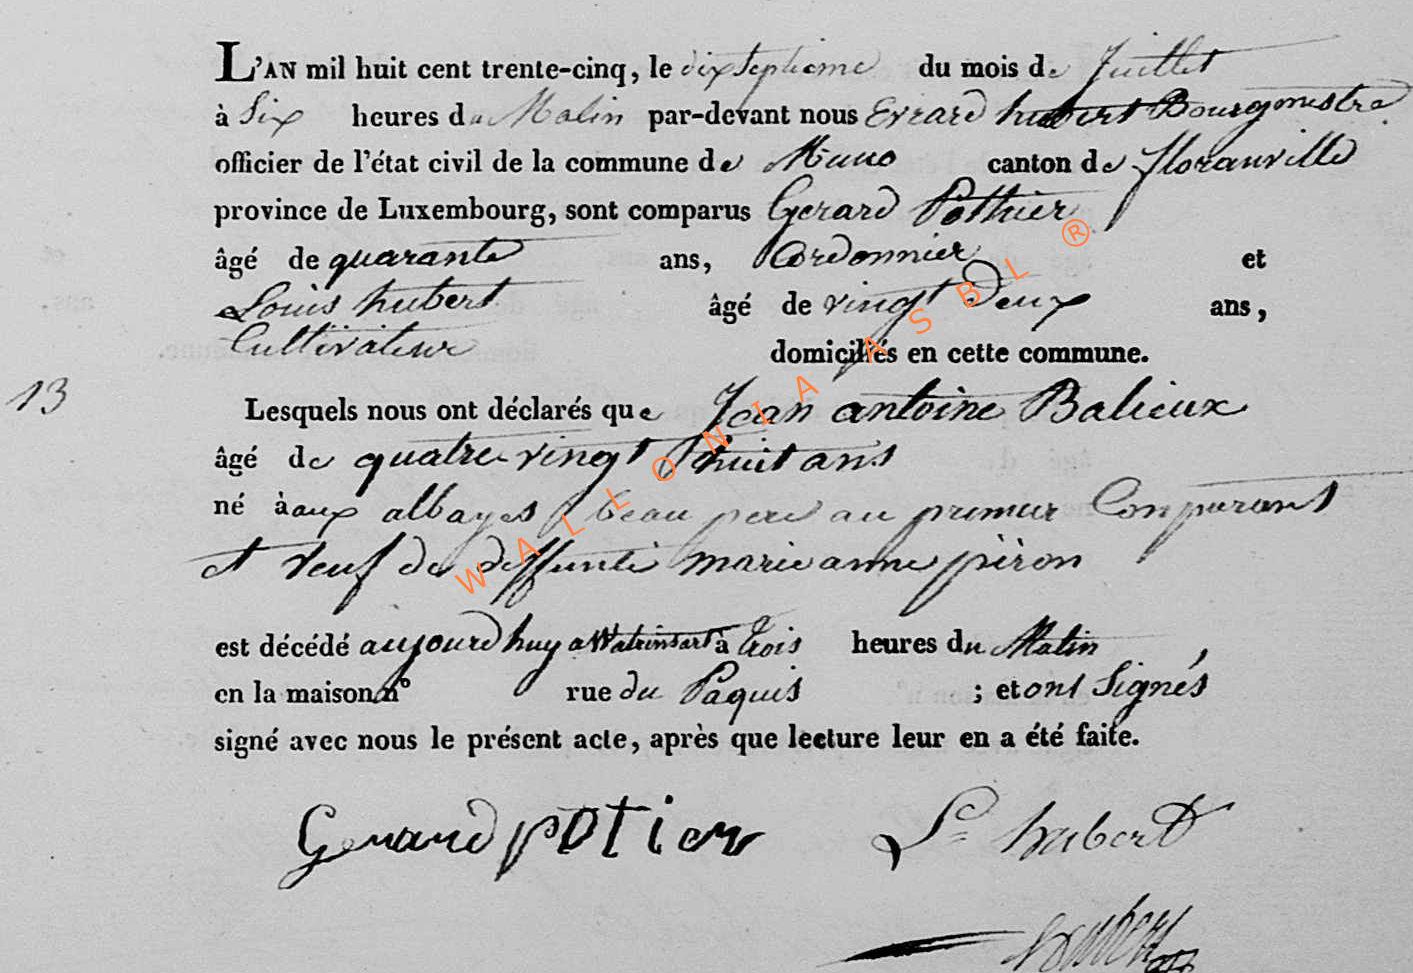 L'AN mil huit cent trente-cinq, le dix septieme du mois de Juillet
à Six heures du Matin par-devant nous Evrard hubert Bourgmestre
officier de l'état civil de la commune de Muno canton de floranville
province de Luxembourg, sont comparus Gerard Pothier
âgé de quarante ans, Cordonnier et
Louis hubert âgé de vingt deux ans,
Cultivateur domiciliés en cette commune.
13
Lesquels nous ont déclarés que Jean antoine Balieux
âgé de quatre vingt huit ans
né à aux albayes beau pere au premier Comparant
et veuf de deffunte marie anne piron
est décédé aujourd huy a Watrinsart à trois heures du Matin,
en la maison nº rue du Paquis ; et ont Signés
signé avec nous le présent acte, après que lecture leur en a été faite.
Gerard potier Ls hubert
WALLONIA ASBL ®